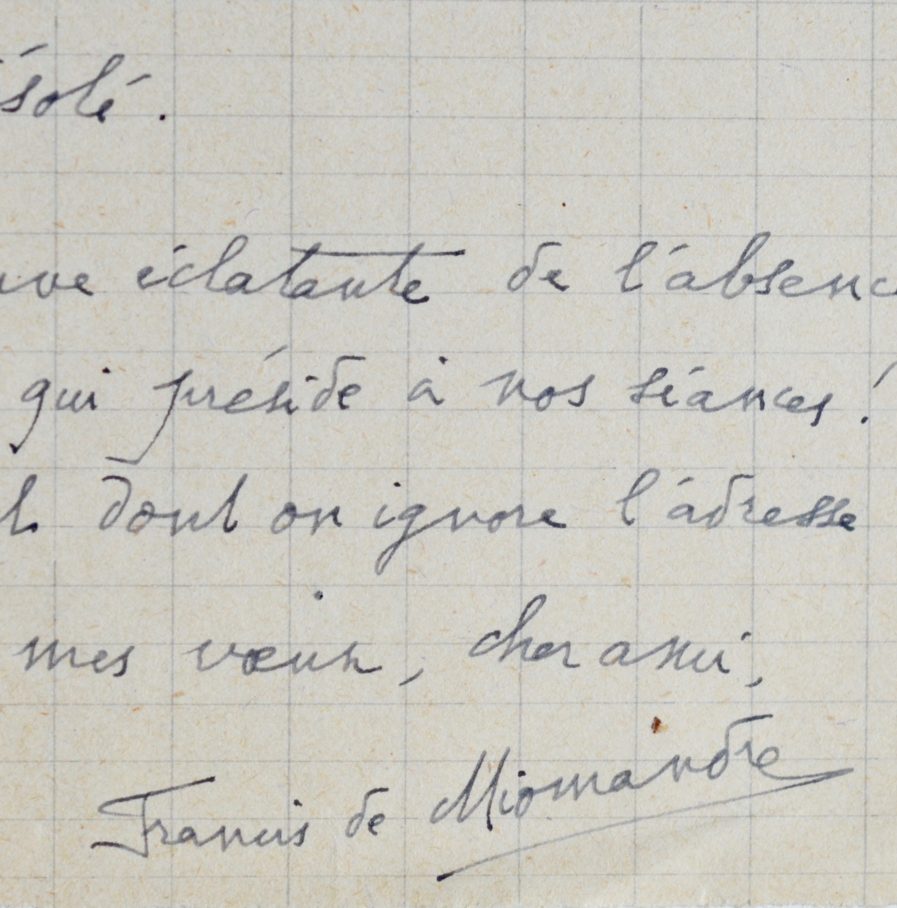 ésolé.
uve éclatante de l'absenc
qui préside à nos séances!
dont on ignore l'adresse
mes vœux, cher ami,
Francis de Miomandre